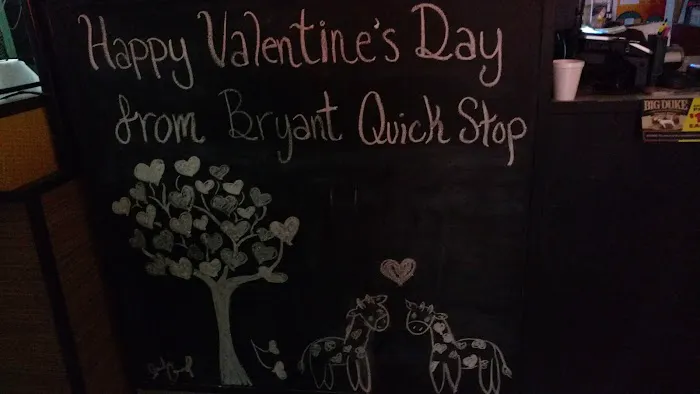 Happy Valentine's Day
from Bryant Quick Stop
BIG DUKE